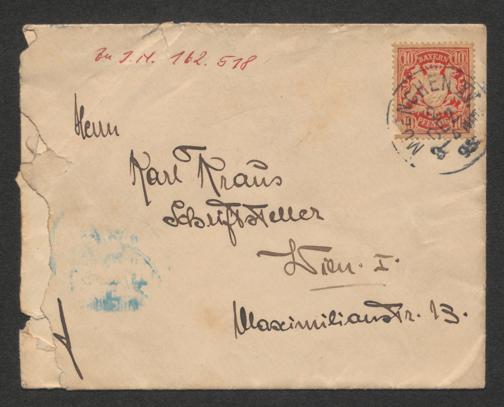 Zu I.N. 162.518
10 BAYERN 10
PFENNIG
MÜNCHEN
Herrn
Karl Kraus
Schriftsteller
Wien. I.
Maximilianstr. 13.